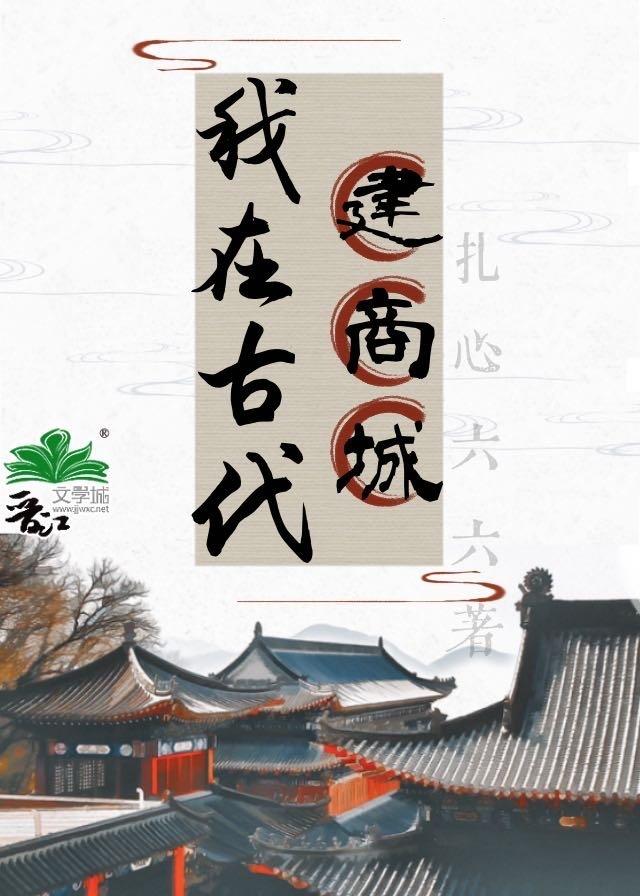 我在古代
建商城
扎心六六著
晋江
文学城
www.jjwxc.net
®